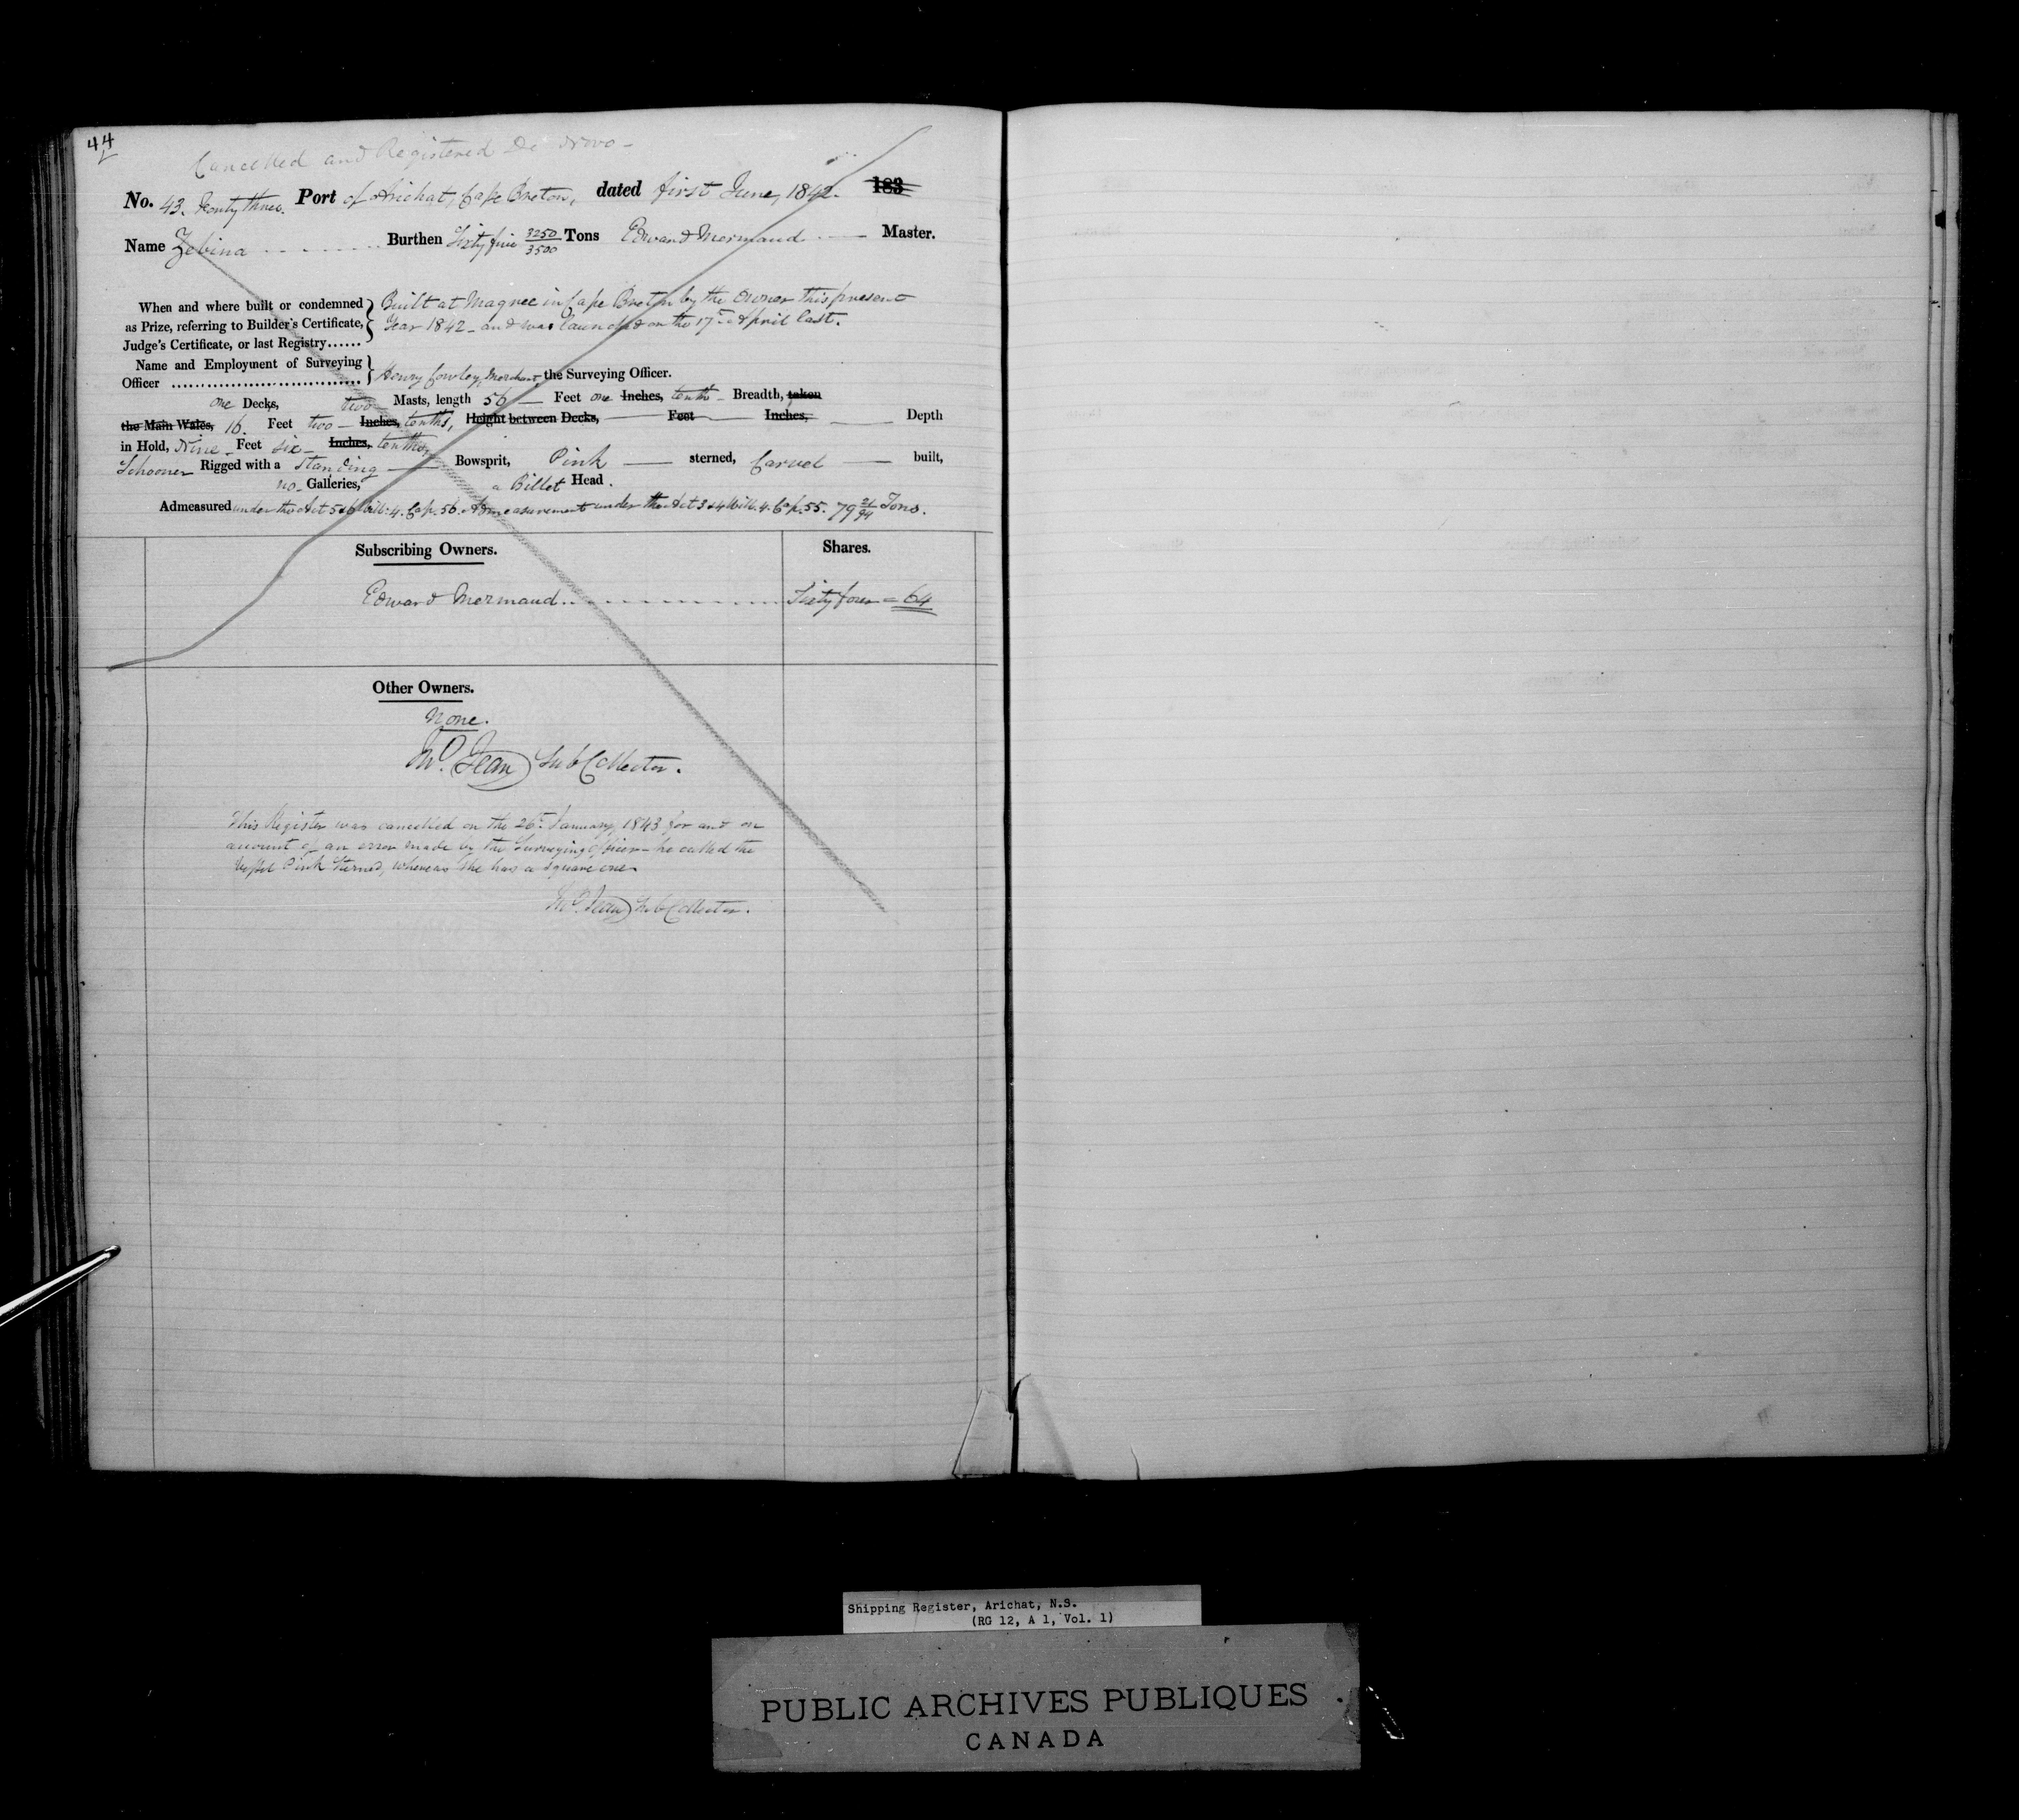 44
Cancelled and Registered De Novo -
No. 43. Forty three. Port of Arichat, Cape Breton, dated first June, 1842. 183
Name Zebina Burthen Sixty five 3250/3500 Tons Edward Mermaud Master.
When and where built or condemned as Prize, referring to Builder's Certificate, Judge's Certificate, or last Registry......
Built at Magree in Cape Breton by the Owner this present
Year 1842 - and was launched on the 17th April last.
Name and Employment of Surveying
Officer ................................ Henry Cowley, Merchant, the Surveying Officer.
one Decks, two Masts, length 56 Feet one Inches, tenth - Breadth, taken
the Main Wales, 16. Feet two - Inches, tenths, Height between Decks, Feet Inches, Depth
in Hold, Nine - Feet six - Inches, tenths,
Schooner Rigged with a Standing Bowsprit, Pink sterned, Carvel built,
no - Galleries, a Billet Head.
Admeasured under the Act 5 & 6 Will: 4. Cap. 56. Admeasurement under the Act 3 & 4 Will. 4. Cap. 55. 79 21/94 Tons.
Subscribing Owners. Shares.
Edward Mermaud Sixty four = 64
Other Owners.
None.
Jno. Jean Sub Collector.
This Register was cancelled on the 26th January, 1843 for and on
account of an error made by the Surveying Officer - he called the
Vessel Pink Sterned, whereas She has a square one
Jno. Jean Sub Collector.
Shipping Register, Arichat, N.S.
(RG 12, A 1, Vol. 1)
PUBLIC ARCHIVES PUBLIQUES
CANADA